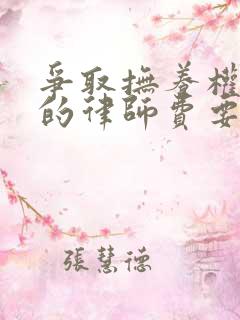 爭取撫養權
的律師費要
張慧德